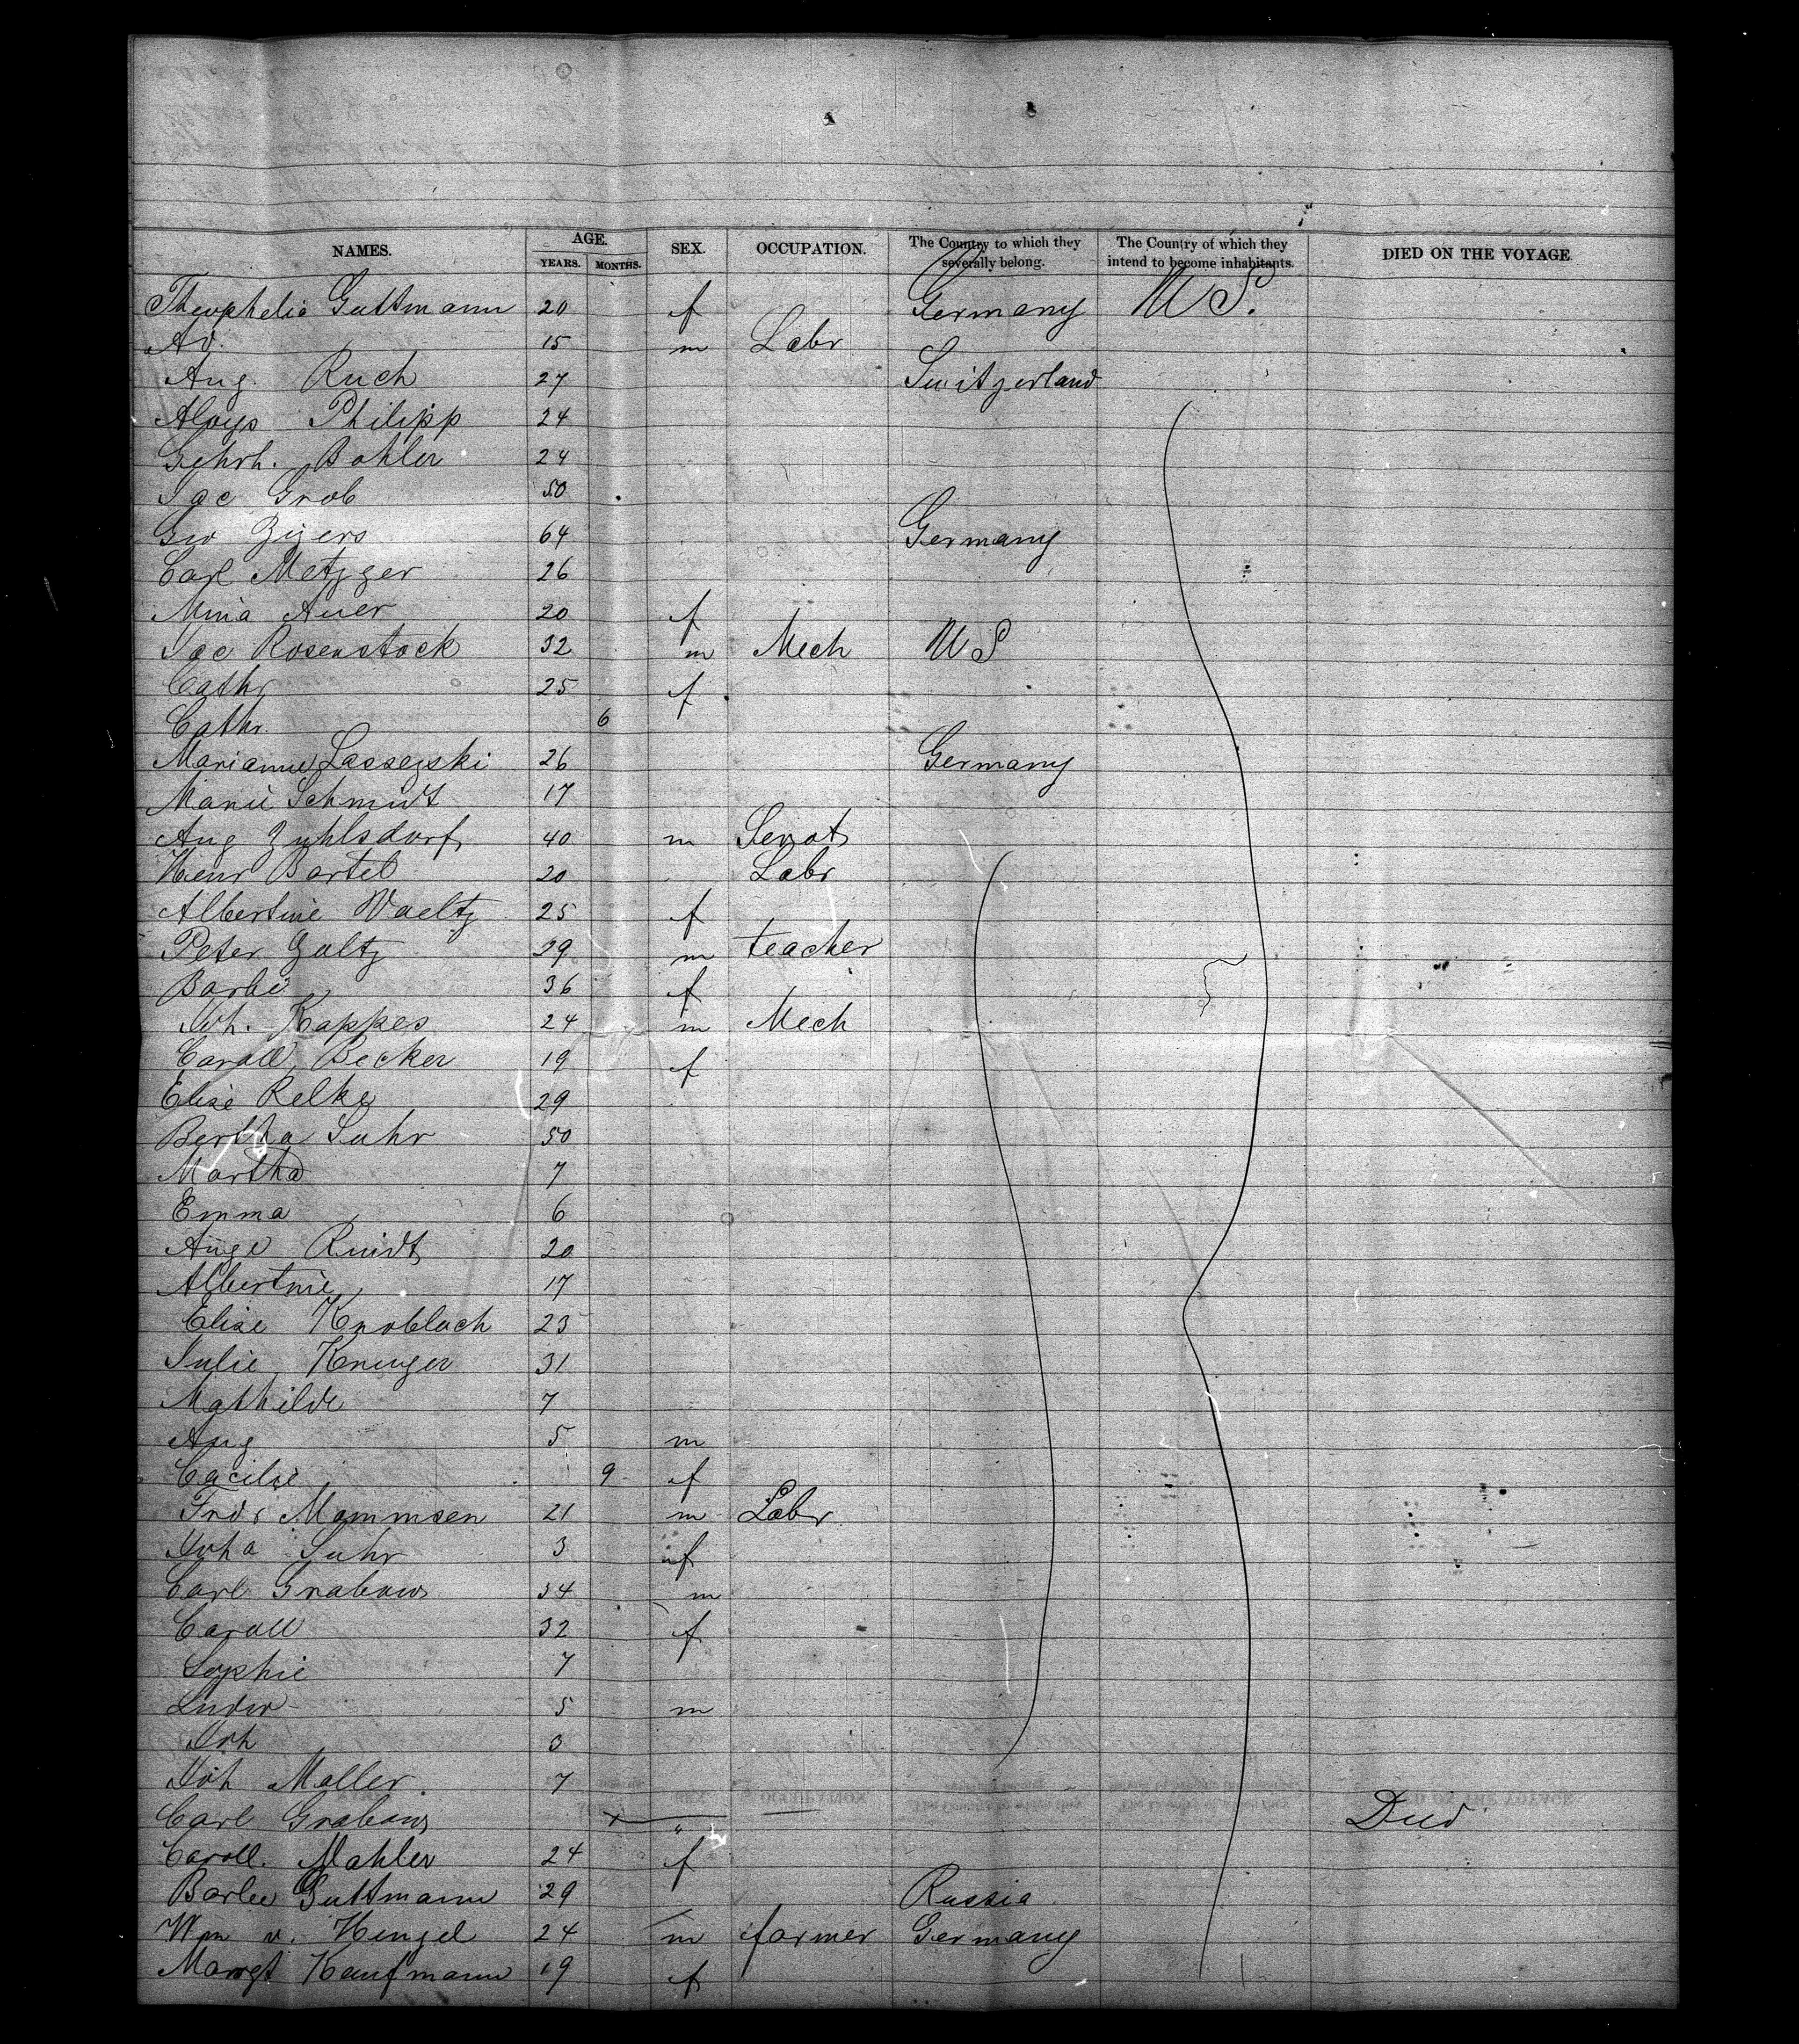 NAMES. AGE. YEARS. MONTHS. SEX. OCCUPATION. The Country to which they severally belong. The Country of which they intend to become inhabitants. DIED ON THE VOYAGE.
Theophelia Guttmann 20 f Germany U S.
Ad. 15 m Labr
Aug. Ruch 27 Switzerland
Aloys Philipp 24
Gehrh. Bohler 24
Jac Grob 50
Geo 64 Germany
Carl Metzger 26
Mina Auer 20 f
Jac Rosenstock 32 m Mech U S
Cathr 25 f
Cathr. 6
Marianne Lassezski 26 Germany
Marie Schmidt 17
Aug Zuhlsdorf 40 m
Henr Bartel 20 Labr
Albertine Vaeltz 25 f
Peter Galtz 29 m teacher
Barbe 36 f
Joh. Kappes 24 m Mech
Caroll Becker 19 f
Elise Relke 29
Bertha Suhr 50
Martha 7
Emma 6
Auge 20
Albertine 17
Elise Knobloch 23
Julie Krueger 31
Mathilde 7
Aug 5 m
Cacilie 9 f
Frdr Mommsen 21 m Labr
Joha Suhr 3 f
Carl Grabow 34 m
Caroll 32 f
Sophie 7
Ludw 5 m
Joh 3
Joh Moller. 7
Carl Grabow " Died
Caroll. Mahler 24 f
Barbe Guttmann 29 Russia
Wm v. Hengel 24 m farmer Germany
Margt Kaufmann 19 f